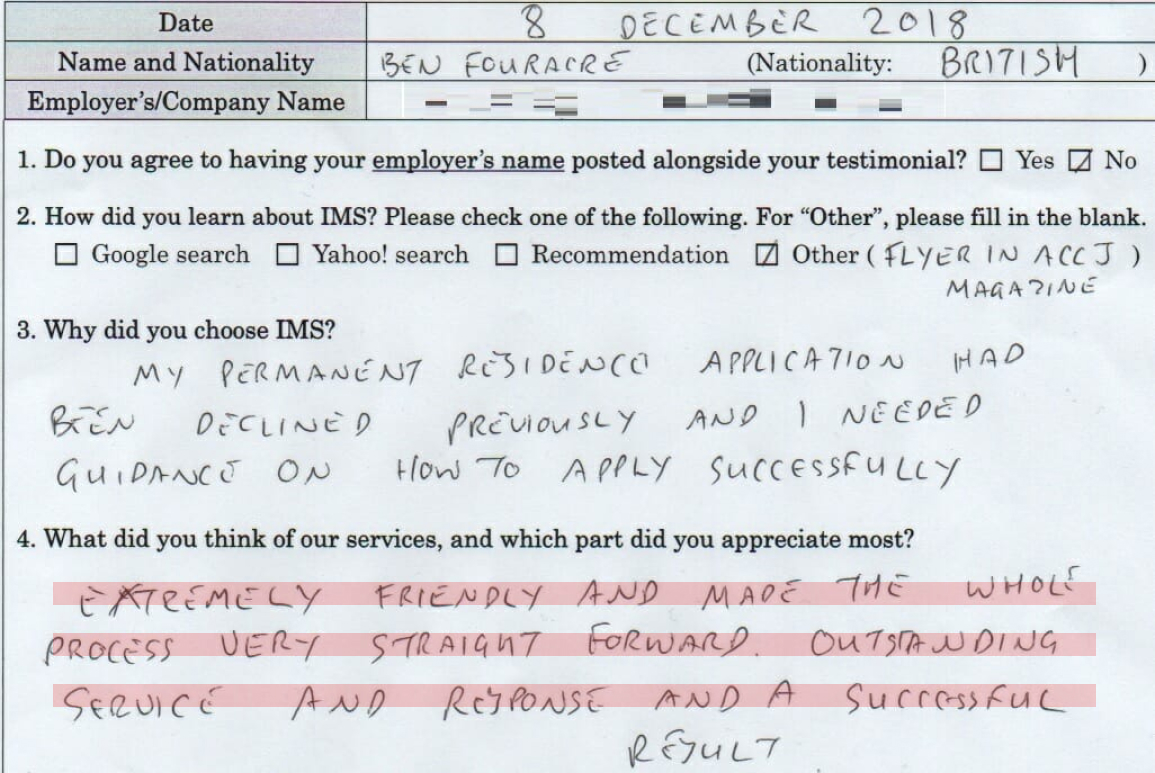 Date 8 DECEMBER 2018
Name and Nationality BEN FOURACRE (Nationality: BRITISH )
Employer's/Company Name
1. Do you agree to having your employer's name posted alongside your testimonial? ☐ Yes ☑ No
2. How did you learn about IMS? Please check one of the following. For “Other”, please fill in the blank.
☐ Google search ☐ Yahoo! search ☐ Recommendation ☑ Other ( FLYER IN ACCJ )
MAGAZINE
3. Why did you choose IMS?
MY PERMANENT RESIDENCE APPLICATION HAD
BEEN DECLINED PREVIOUSLY AND I NEEDED
GUIDANCE ON HOW TO APPLY SUCCESSFULLY
4. What did you think of our services, and which part did you appreciate most?
EXTREMELY FRIENDLY AND MADE THE WHOLE
PROCESS VERY STRAIGHT FORWARD. OUTSTANDING
SERVICE AND RESPONSE AND A SUCCESSFUL
RESULT